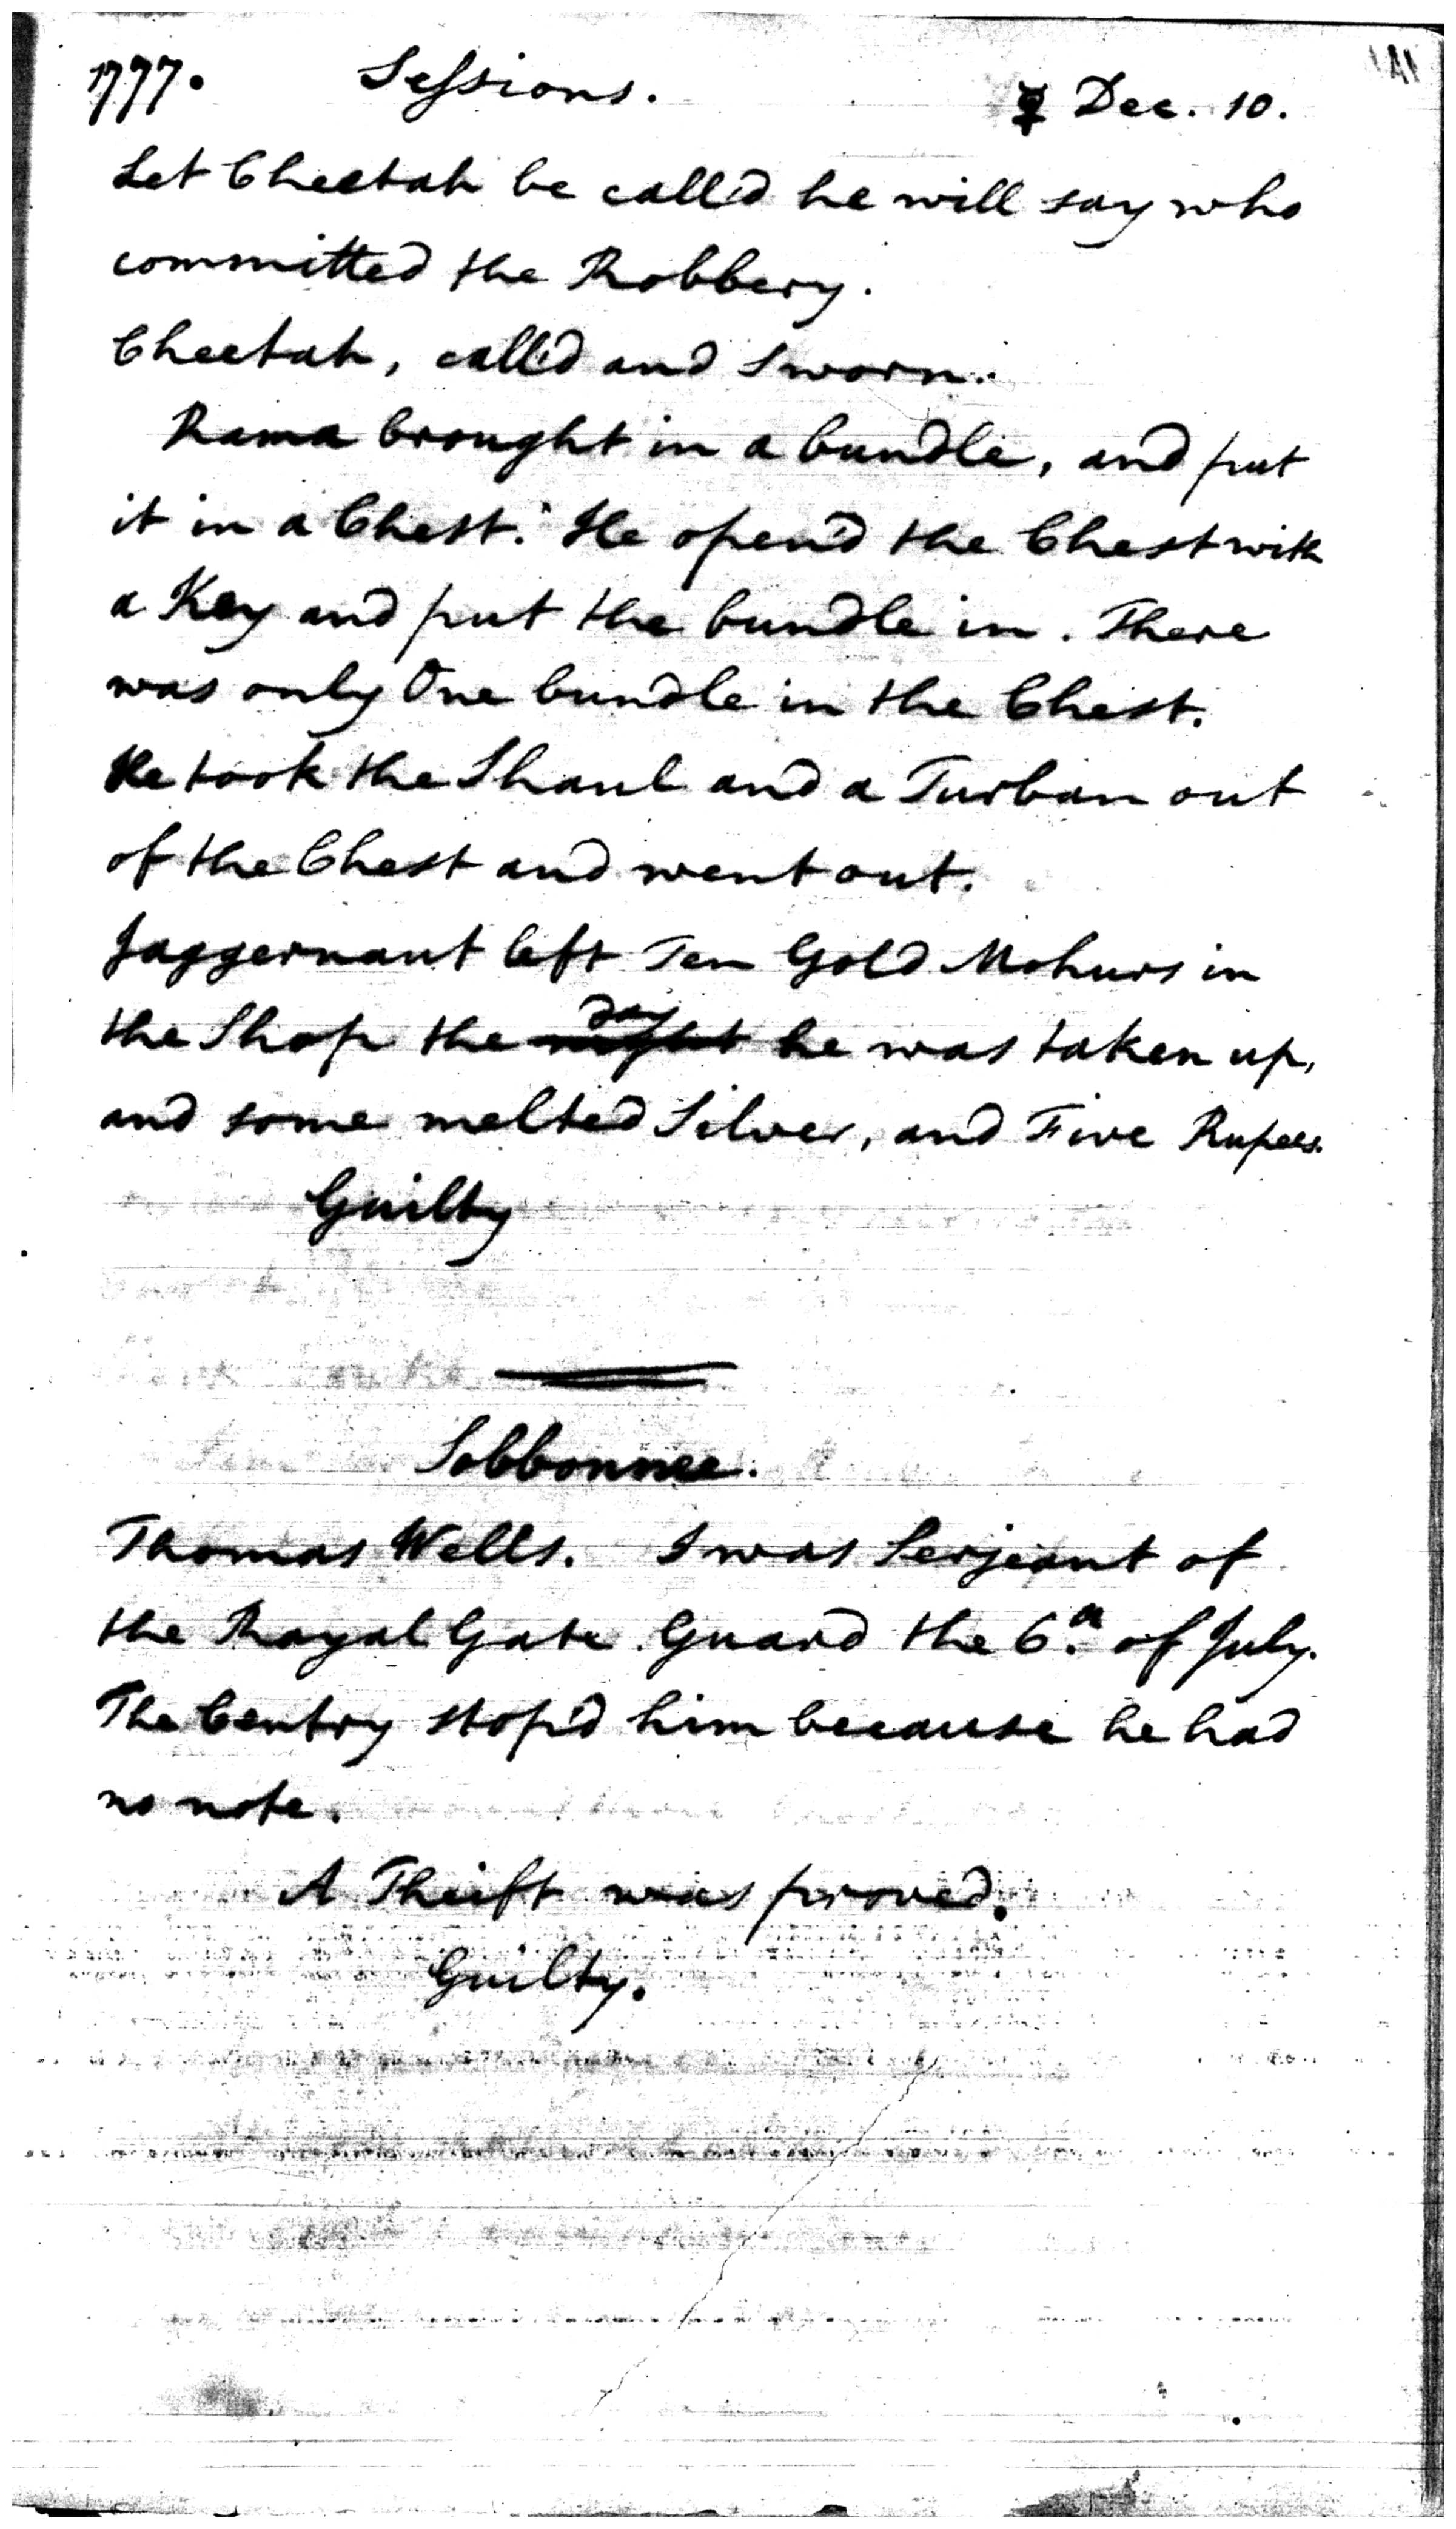 1777. Sessions. ☿ Dec. 10.
Let Cheetah be call'd he will say who
committed the Robbery.
Cheetah, call'd and Sworn.
Rama brought in a bundle, and put
it in a Chest. He open'd the Chest with
a Key and put the bundle in. There
was only One bundle in the Chest.
He took the Shaul and a Turban out
of the Chest and went out.
Jaggernaut left Ten Gold Mohurs in
day
the Shop the night he was taken up,
and some melted Silver, and Five Rupees.
Guilty
Sobbonnee.
Thomas Wells. I was Serjeant of
the Royal Gate Guard the 6.th of July.
The Centry stop'd him because he had
no note.
A Theift was proved.
Guilty.